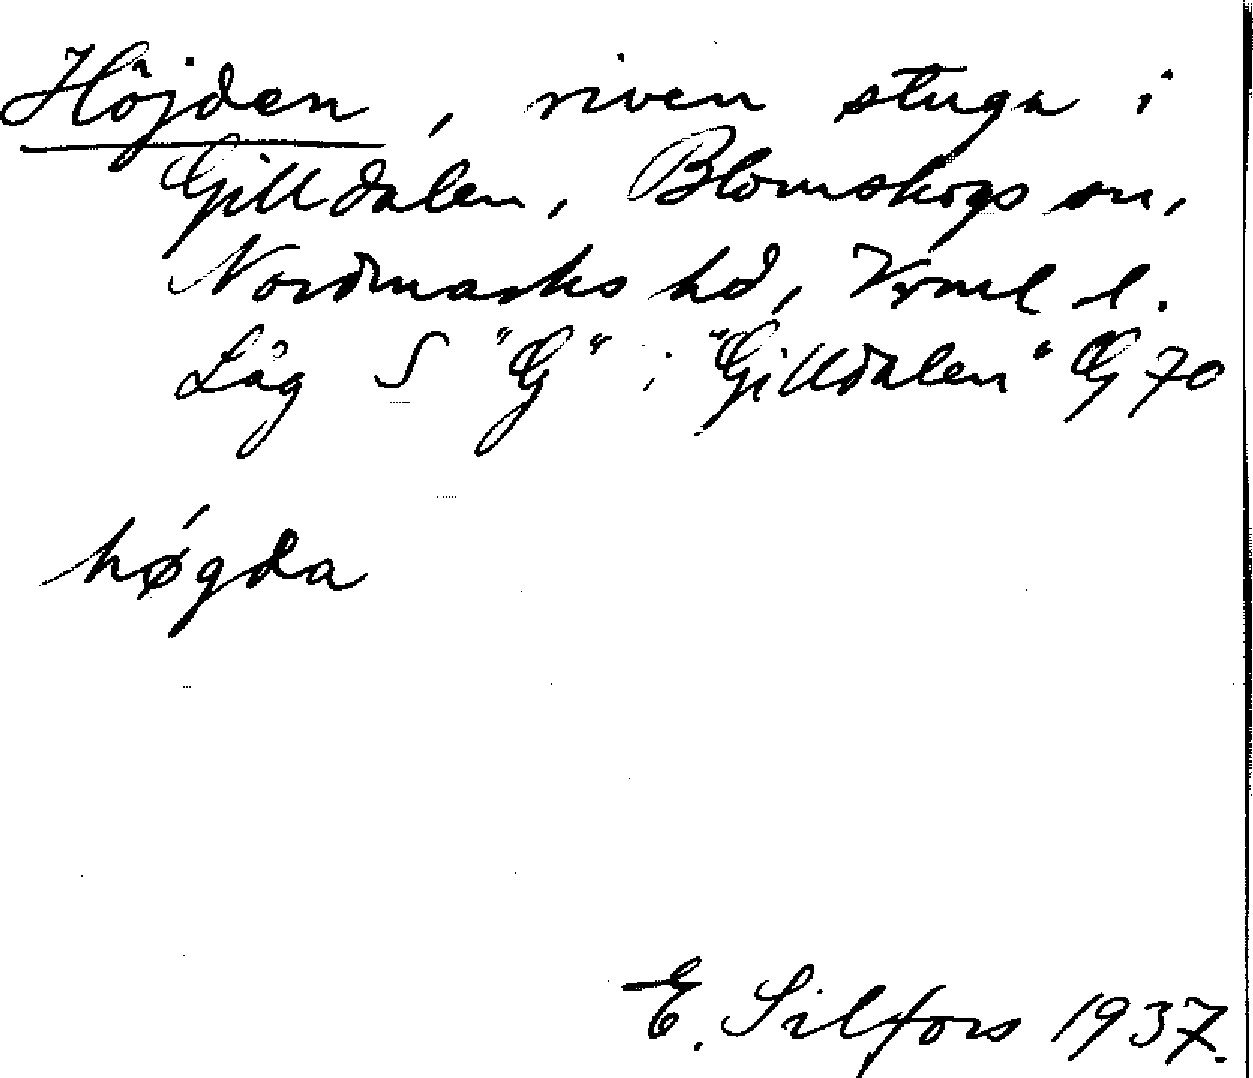 Höjden, riven stuga i
Gilldalen, Blomskogs sn,
Nordmarks hd, Vrml l.
Låg S "G" i "Gilldalen" G 70
hǿgda
E. Silfors 1937.